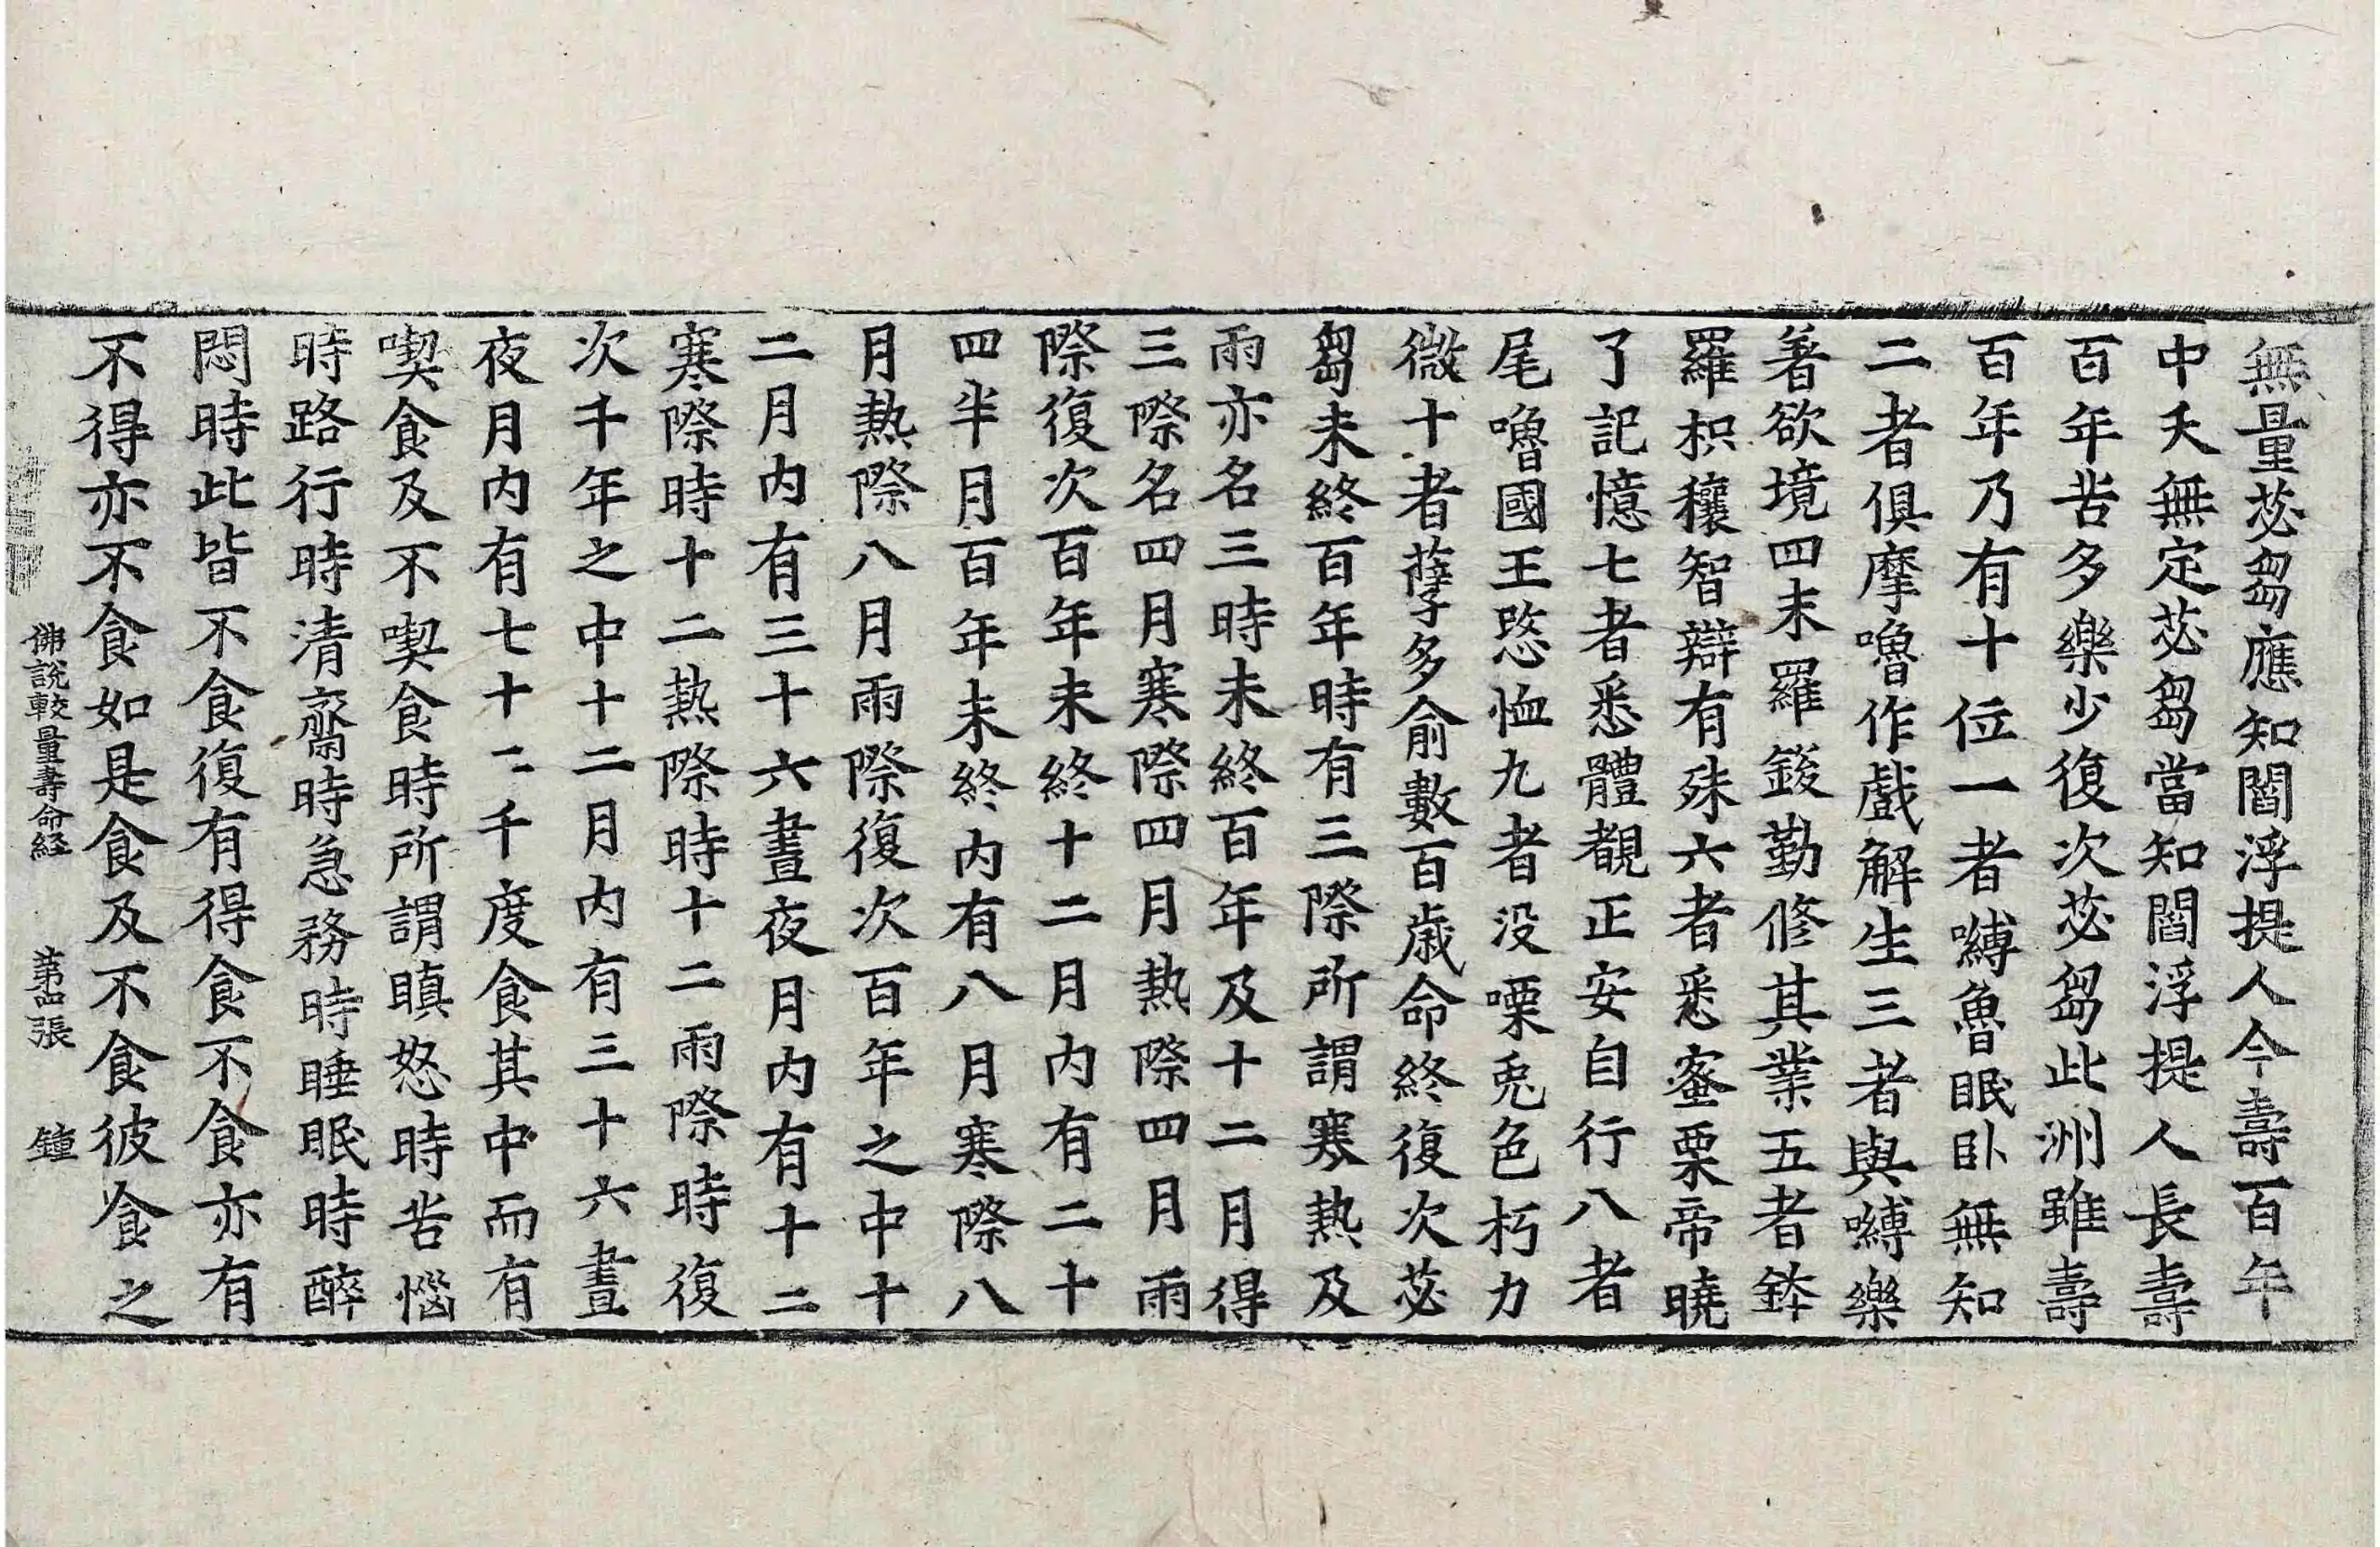 無量苾芻應知閻浮提人今壽百年
中夭無定苾芻當知閻浮提人長壽
百年苦多樂少復次苾芻此洲雖壽
百年乃有十位一者嚩魯眠卧無知
二者俱摩嚕作戲解生三者與嚩樂
著欲境四末羅鋑勤修其業五者鉢
羅枳穰智辯有殊六者悉蜜栗帝曉
了記憶七者悉體覩正安自行八者
尾嚕國王愍恤九者没㗚兎色朽力
微十者孽多俞數百歲命終復次苾
芻未終百年時有三際所謂寒熱及
雨亦名三時未終百年及十二月得
三際名四月寒際四月熱際四月雨
際復次百年未終十二月内有二十
四半月百年未終内有八月寒際八
月熱際八月雨際復次百年之中十
二月内有三十六晝夜月内有十二
寒際時十二熱際時十二雨際時復
次千年之中十二月内有三十六晝
夜月内有七十二千度食其中而有
喫食及不喫食時所謂瞋怒時苦惱
時路行時清齋時急務時睡眠時醉
悶時此皆不食復有得食不食亦有
不得亦不食如是食及不食彼食之
佛說較量壽命経 苐四張 鍾